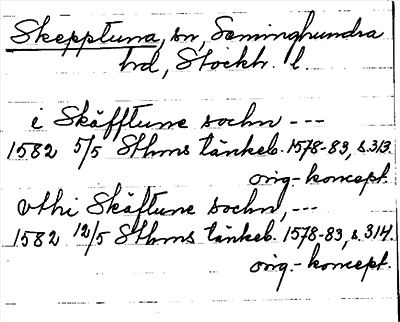 Skepptuna, sn, Seminghundra
hd, Stockh. l
i Skäfftune sochn ---
1582 5/5 Sthms tänkeb. 1578-83, s. 313.
orig.-koncept.
vthi Skäftune sochn, ---
1582 12/5 Sthms tänkeb. 1578-83, s. 314.
orig.-koncept.